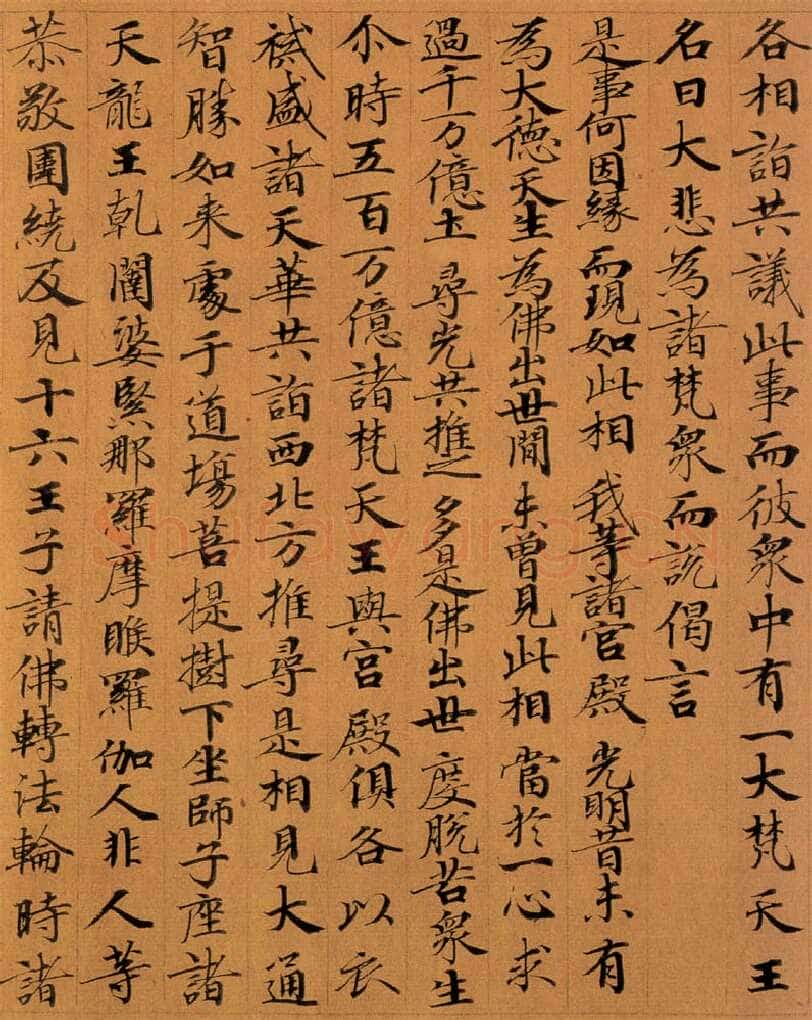 各相詣共議此事而彼衆中有一大梵天王
名曰大悲為諸梵衆而說偈言
是事何因緣 而現如此相 我等諸宮殿 光明昔未有
為大德天生 為佛出世間 未曾見此相 當於一心求
過千万億土 尋光共推之 多是佛出世 度脫苦衆生
尒時五百万億諸梵天王與宮殿俱各以衣
裓盛諸天華共詣西北方推尋是相見大通
智勝如来處于道場菩提樹下坐師子座諸
天龍王乹闥婆緊那羅摩睺羅伽人非人等
恭敬圍繞及見十六王子請佛轉法輪時諸